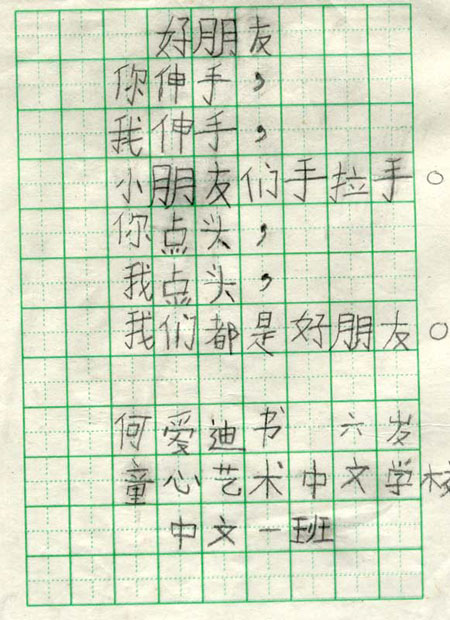 好朋友
你伸手，
我伸手，
小朋友们手拉手。
你点头，
我点头，
我们都是好朋友。
何爱迪书 六岁
童心艺术中文学校
中文一班